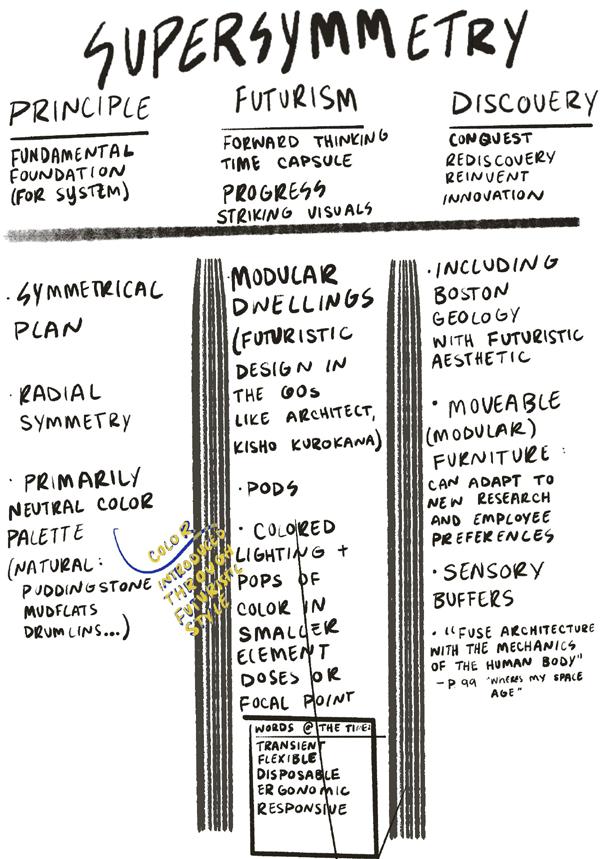 SUPERSYMMETRY
PRINCIPLE
FUNDAMENTAL
FOUNDATION
(FOR SYSTEM)
FUTURISM
FORWARD THINKING
TIME CAPSULE
PROGRESS
STRIKING VISUALS
DISCOVERY
CONQUEST
REDISCOVERY
REINVENT
INNOVATION
· SYMMETRICAL
PLAN
· RADIAL
SYMMETRY
· PRIMARILY
NEUTRAL COLOR
PALETTE
(NATURAL:
PUDDINGSTONE
MUDFLATS
DRUMLINS...)
COLOR
INTRODUCED
THROUGH
FUTURISTIC
STYLE
· MODULAR
DWELLINGS
(FUTURISTIC
DESIGN IN
THE 60s
LIKE ARCHITECT,
KISHO KUROKANA)
· PODS
· COLORED
LIGHTING +
POPS OF
COLOR IN
SMALLER
ELEMENT
DOSES OR
FOCAL POINT
WORDS @ THE TIME:
TRANSIENT
FLEXIBLE
DISPOSABLE
ERGONOMIC
RESPONSIVE
· INCLUDING
BOSTON
GEOLOGY
WITH FUTURISTIC
AESTHETIC
· MOVEABLE
(MODULAR)
FURNITURE:
CAN ADAPT TO
NEW RESEARCH
AND EMPLOYEE
PREFERENCES
· SENSORY
BUFFERS
· "FUSE ARCHITECTURE
WITH THE MECHANICS
OF THE HUMAN BODY"
- P. 99 "WHERES MY SPACE
AGE"